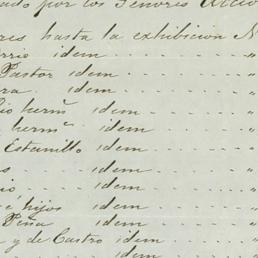 ado por los Senores Accio
res hasta la exhibicion N
rrio idem "
Pastor idem "
ra. idem "
io herm.º idem "
herm.º idem "
Estanillo idem "
s idem "
io idem "
é hijos idem "
Peña idem "
a y de Castro idem "
idem "